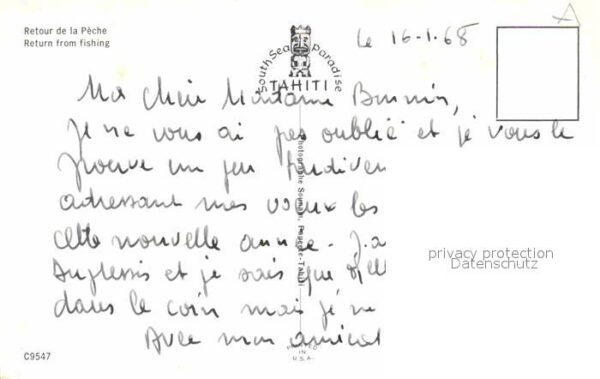 Retour de la Pèche
Return from fishing
South Sea Paradise
TAHITI
le 16-1.68
Ma chère Madame
Je ne vous ai pas oublié et je vous le
prouve un peu tardiven
adressant mes voeux les
cette nouvelle année. J'a
et je sais que
dans le coin mais je ne
Avec mon amical
Photographe Sounam, Papeete-Tahiti
privacy protection
Datenschutz
PRINTED IN U.S.A.
C9547